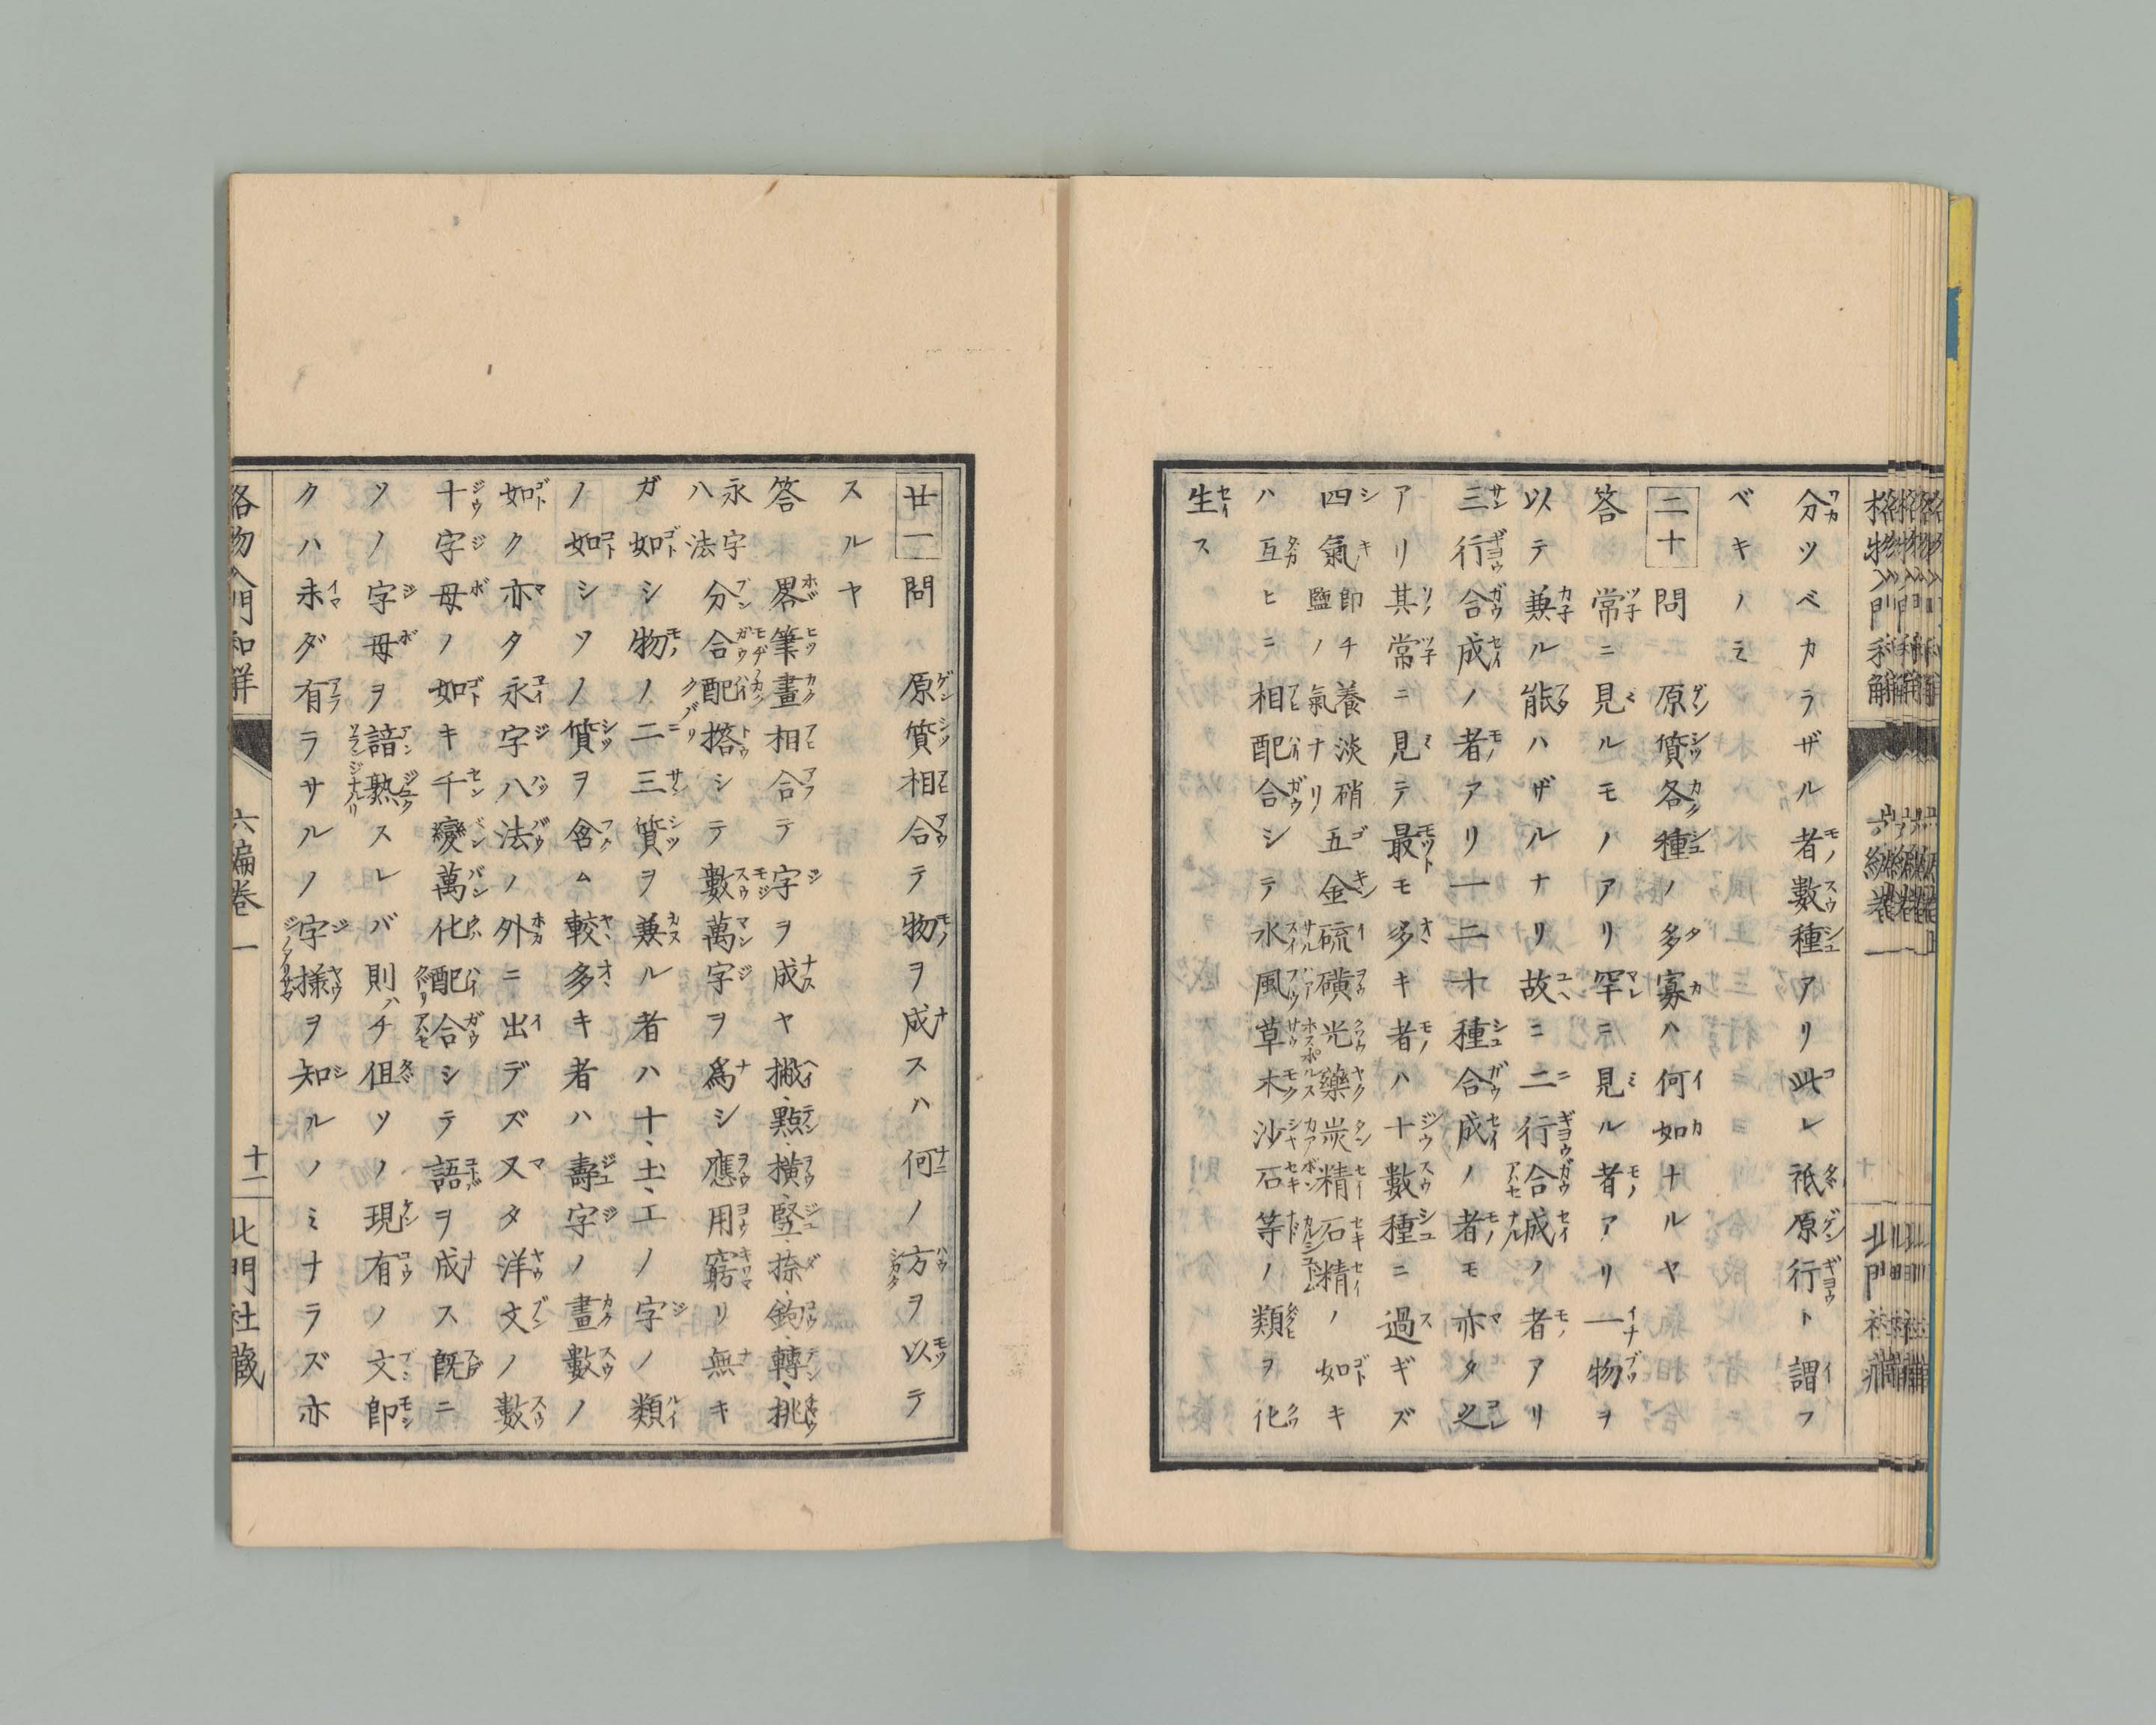 分ツベカラザル者數種アリ此レ祇原行ト謂フ
ベキノミ
二十 問 原質各種ノ多寡ハ何如ナルヤ
答 常ニ見ルモノアリ罕ニ見ル者アリ一物ヲ
以テ兼ル能ハザルナリ故ニ二行合成ノ者アリ
三行合成ノ者アリ一二十種合成ノ者モ亦タ之
アリ其常ニ見テ最モ多キ者ハ十數種ニ過ギズ
四氣即チ養淡硝鹽ノ氣ナリ五金硫磺光藥炭精石精ノ如キ
ハ互ヒニ相配合シテ水風草木沙石等ノ類ヲ化
生ス
廿一 問ハ原質相合テ物ヲ成スハ何ノ方ヲ以テ
スルヤ
答 畧筆畫相合テ字ヲ成ヤ撇、點、橫、竪、捺、鉤、轉、挑
永字八法分合配搭シテ數萬字ヲ爲シ應用窮リ無キ
ガ如シ物ノ二三質ヲ兼ル者ハ十、土、工ノ字ノ類
ノ如シソノ質ヲ含ム較多キ者ハ壽字ノ畫數ノ
如ク亦タ永字八法ノ外ニ出デズ又タ洋文ノ數
十字母ノ如キ千變萬化配合シテ語ヲ成ス旣ニ
ソノ字母ヲ諳熟スレバ則ハチ但ソノ現有ノ文即
クハ未ダ有ラサルノ字樣ヲ知ルノミナラズ亦
格物入門和解 六編卷一 十一 北門社藏